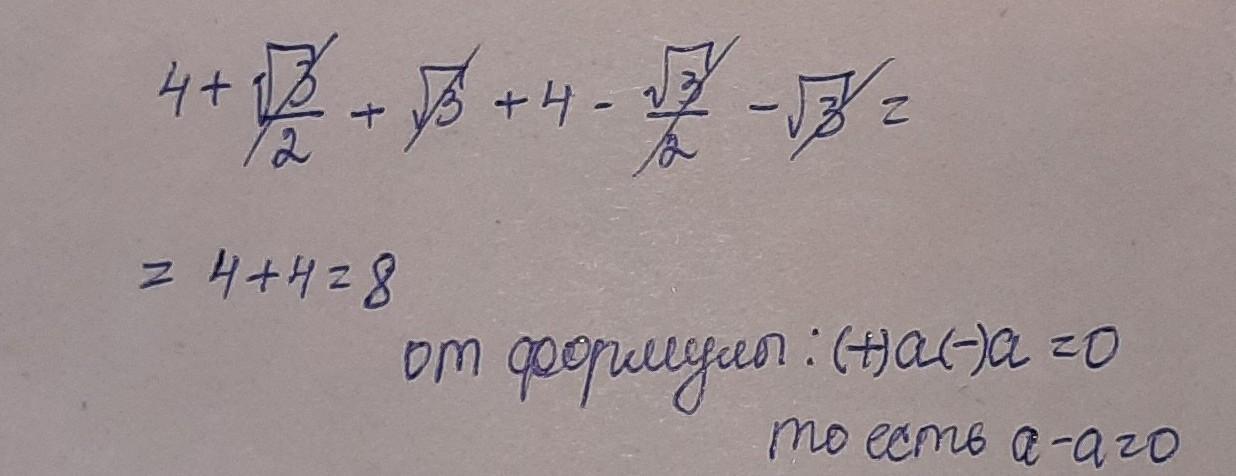 4 + √3/2 + √3 + 4 - √3/2 - √3 =
= 4 + 4 = 8
от формулы: (+)a(-)a = 0
то есть a - a = 0